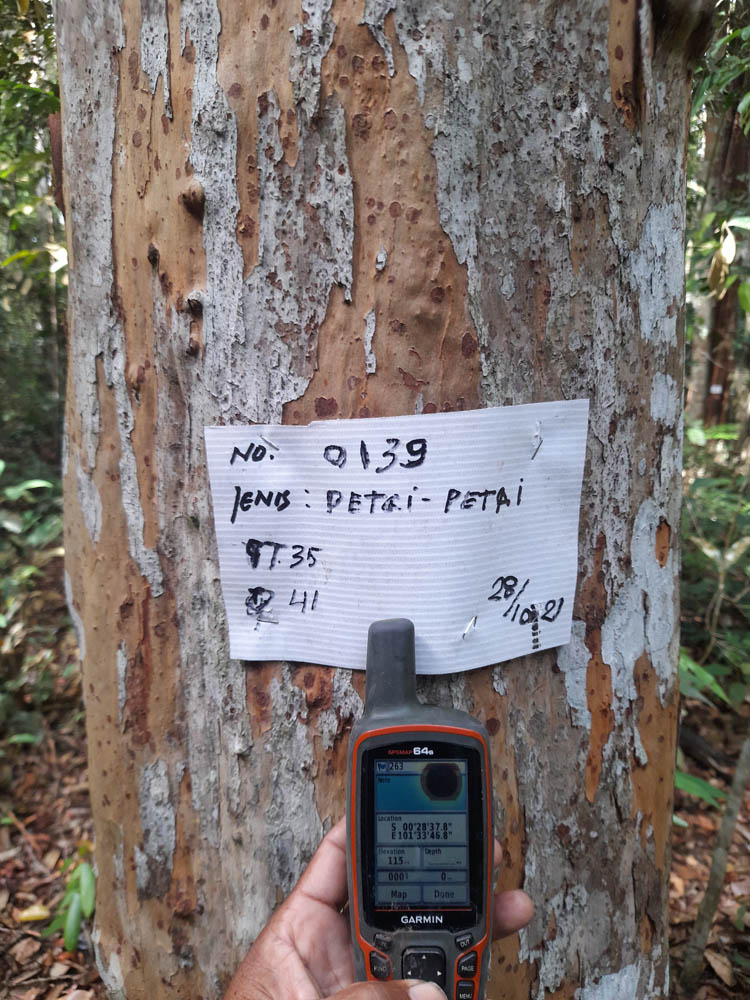 NO. 0139
JENIS : PETAI-PETAI
T. 35
41
28/10 21
GPSMAP 64s
263
Note
Location
S 00°28'37.8"
E101°33'46.8"
Elevation Depth
115
0
Map Done
GARMIN
FIND
PAGE
MENU